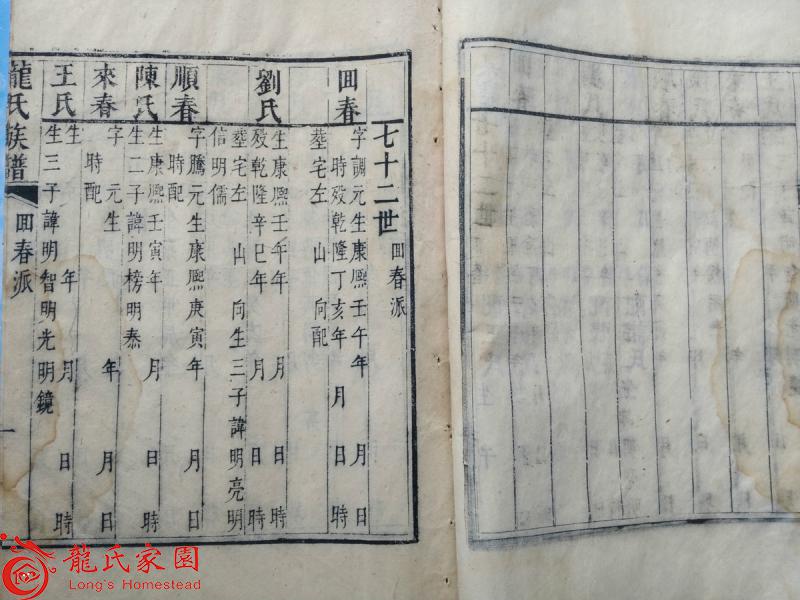 七十二世 囬春派
囬春
字調元生康熙壬午年 月 日
時歿乾隆丁亥年 月 日 時
塟宅左 山 向配
劉氏
生康熙壬午年 月 日 時
歿乾隆辛巳年 月 日 時
塟宅左 山 向生三子諱明亮明
信明儒
順春
字騰元生康熙庚寅年 月 日
時配
陳氏
生康熙壬寅年 月 日 時
生二子諱明榜明泰
來春
字 元生 年 月 日
時配
王氏
生 年 月 日 時
生三子諱明智明光明鏡
龍氏族譜 囬春派 一
龍氏家園
Long's Homestead